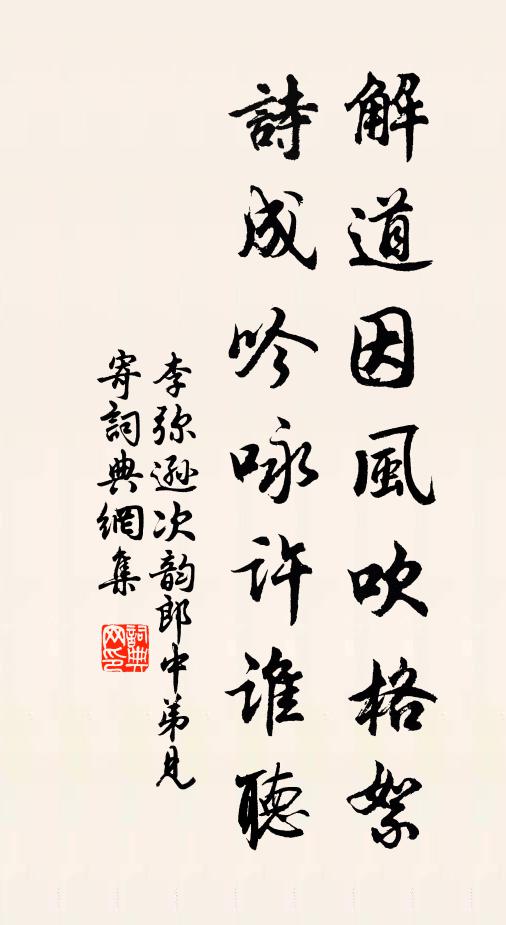 解道因風吹格絮
詩成吟咏許誰聽
李弥遜次韵郎中弟見
寄詞典網集
詞典網印